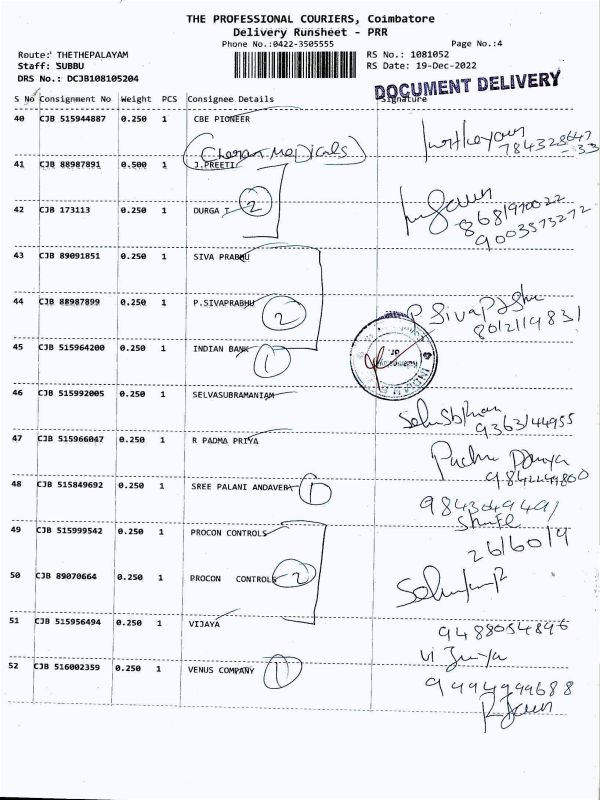 THE PROFESSIONAL COURIERS, Coimbatore
Delivery Runsheet - PRR
Phone No.:0422-3505555 Page No.:4
Route: THETHEPALAYAM RS No.: 1081052
Staff: SUBBU RS Date: 19-Dec-2022
DRS No.: DCJB108105204
DOCUMENT DELIVERY
S No Consignment No Weight PCS Consignee Details Signature
40 CJB 515944887 0.250 1 CBE PIONEER
Cheran Medicals
41 CJB 88987891 0.500 1 J.PREETI
42 CJB 173113 0.250 1 DURGA T 2
9003573272
43 CJB 89091851 0.250 1 SIVA PRABHU
44 CJB 88987899 0.250 1 P.SIVAPRABHU 2
45 CJB 515964200 0.250 1 INDIAN BANK 1
46 CJB 515992005 0.250 1 SELVASUBRAMANIAM
9363144955
47 CJB 515966047 0.250 1 R PADMA PRIYA
48 CJB 515849692 0.250 1 SREE PALANI ANDAVER 1
49 CJB 515999542 0.250 1 PROCON CONTROLS
50 CJB 89070664 0.250 1 PROCON CONTROLS 2
51 CJB 515956494 0.250 1 VIJAYA
52 CJB 516002359 0.250 1 VENUS COMPANY 1